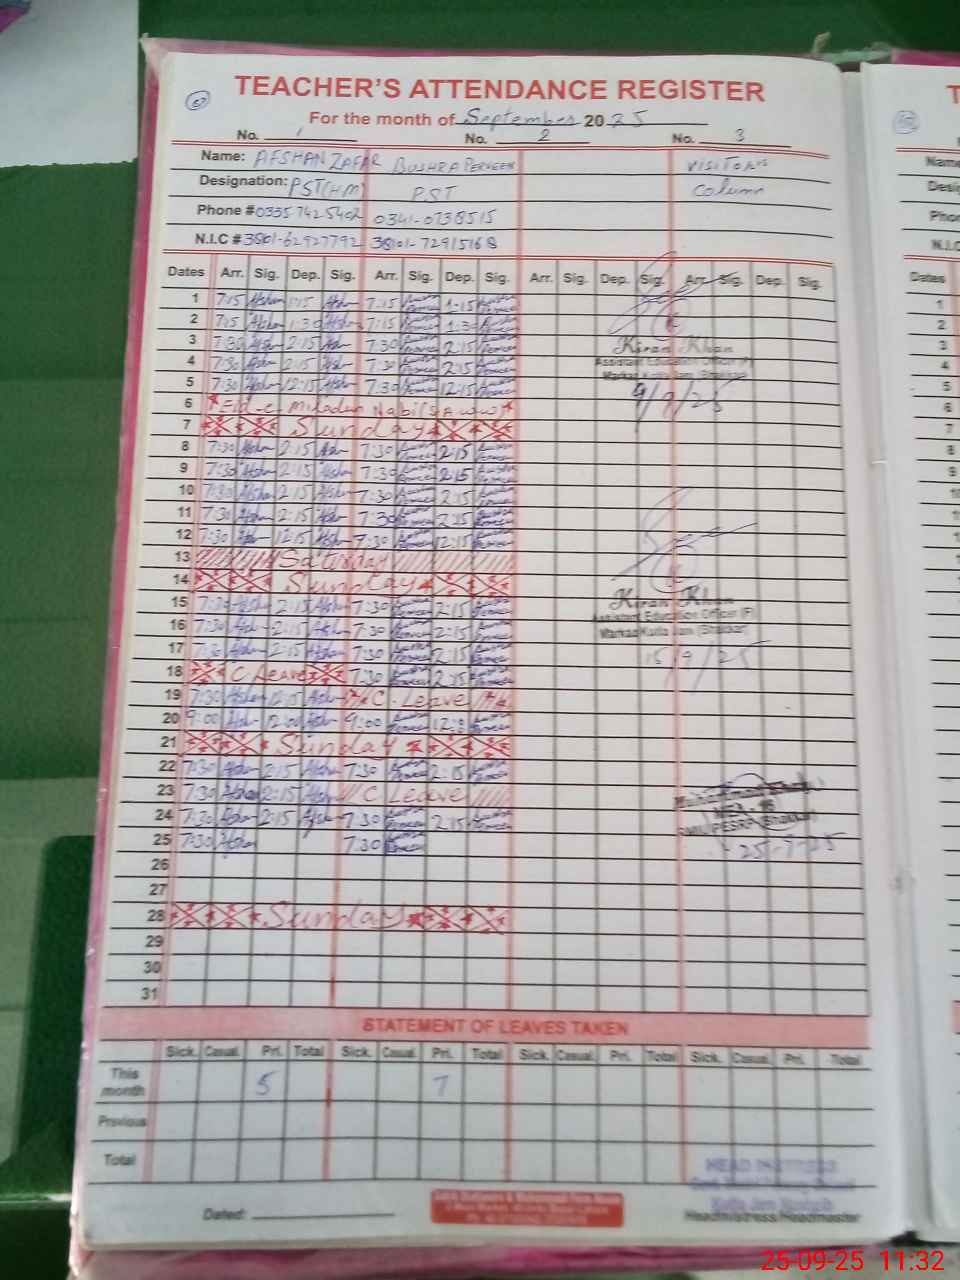 TEACHER'S ATTENDANCE REGISTER
67
For the month of September 2025
No. 1 No. 2 No. 3
Name: AFSHAN ZAFAR BUSHRA PERVEEN VISITORS
Designation: PST(HM) PST Column
Phone # 0335-7425402 0341-0738515
N.I.C # 3801-62927792 38101-72915168
Dates Arr. Sig. Dep. Sig. Arr. Sig. Dep. Sig. Arr. Sig. Dep. Sig. Arr. Sig. Dep. Sig.
1 7:15 Afshan 1:15 Afshan 7:15 1:15
2 7:15 Afshan 1:30 Afshan 7:15 1:30
3 7:30 Afshan 2:15 Afshan 7:30 2:15 Kiran Khan
4 7:30 Afshan 2:15 Afshan 7:30 2:15 Assistant Education Officer (F)
Markaz Kotla Jam (Bhakkar)
5 7:30 Afshan 12:15 Afshan 7:30 12:15 9/9/25
6 Eid-e-Miladun Nabi (S.A.W.W)
7 Sunday
8 7:30 Afshan 2:15 Afshan 7:30 2:15
9 7:30 Afshan 2:15 Afshan 7:30 2:15
10 7:30 Afshan 2:15 Afshan 7:30 2:15
11 7:30 Afshan 2:15 Afshan 7:30 2:15
12 7:30 Afshan 12:15 Afshan 7:30 12:15
13 Saturday
14 Sunday
15 7:30 Afshan 2:15 Afshan 7:30 2:15 Kiran Khan
Assistant Education Officer (F)
16 7:30 Afshan 2:15 Afshan 7:30 2:15 Markaz Kotla Jam (Bhakkar)
17 7:30 Afshan 2:15 Afshan 7:30 2:15 15/9/25
18 C Leave 7:30 2:15
19 7:30 Afshan 12:15 Afshan C-Leave
20 9:00 Afshan 12:00 Afshan 9:00 12:00
21 Sunday
22 7:30 Afshan 2:15 Afshan 7:30 2:15
23 7:30 Afshan 2:15 Afshan C Leave
24 7:30 Afshan 2:15 Afshan 7:30 2:15 (Bhakkar)
25 7:30 Afshan 7:30 25-9-25
26
27
28 Sunday
29
30
31
STATEMENT OF LEAVES TAKEN
Sick. Casual. Pri. Total Sick. Casual. Pri. Total Sick. Casual. Pri. Total Sick. Casual. Pri. Total
This month 5 7
Previous
Total
HEAD MISTRESS
Dated: Headmistress/Headmaster
T
Name
Desig
Phon
N.I.C
Dates
1
2
3
4
5
6
7
8
9
25-09-25 11:32